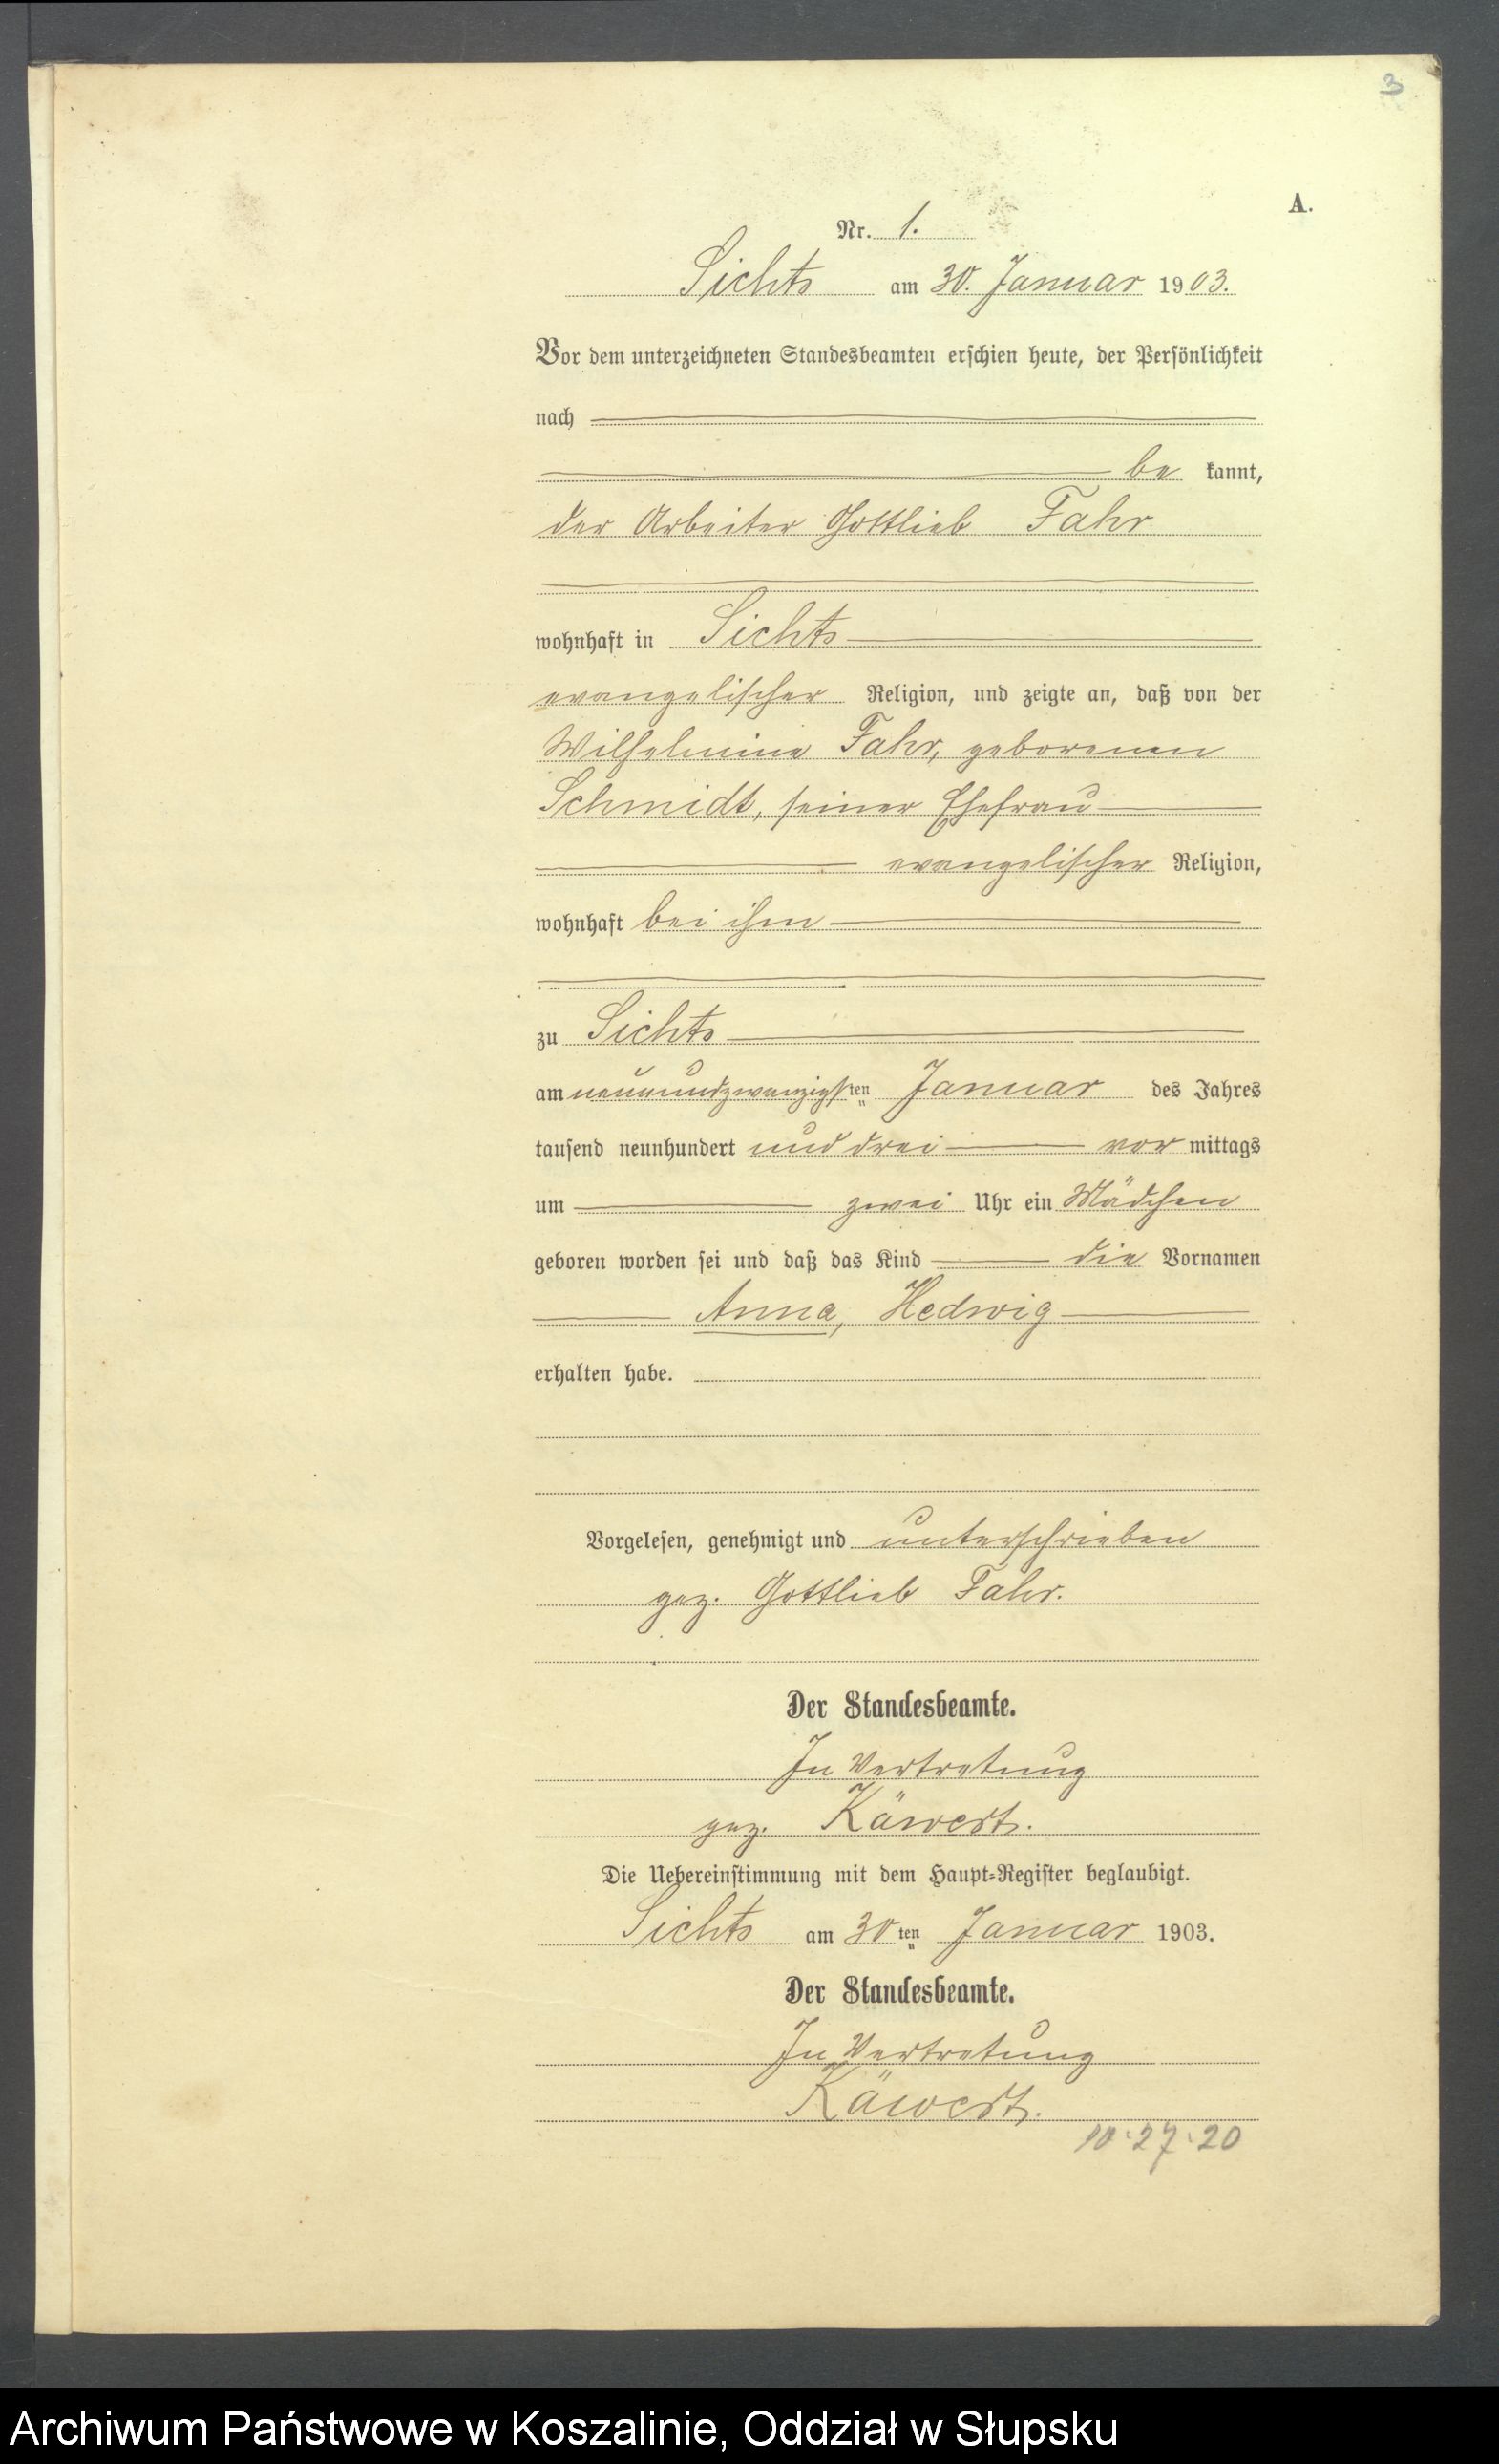 3
A.
Nr. 1.
Sichts am 30. Januar 1903.
Vor dem unterzeichneten Standesbeamten erschien heute, der Persönlichkeit
nach
be kannt,
der Arbeiter Gottlieb Fahr
wohnhaft in Sichts
evangelischer Religion, und zeigte an, daß von der
Wilhelmine Fahr, geborenen
Schmidt, seiner Ehefrau
evangelischer Religion,
wohnhaft bei ihm
zu Sichts
am neunundzwanzigsten Januar des Jahres
tausend neunhundert und drei vor mittags
um zwei Uhr ein Mädchen
geboren worden sei und daß das Kind die Vornamen
Anna, Hedwig
erhalten habe.
Vorgelesen, genehmigt und unterschrieben
gez. Gottlieb Fahr.
Der Standesbeamte.
In Vertretung
gez. Käwert.
Die Uebereinstimmung mit dem Haupt-Register beglaubigt.
Sichts am 30ten Januar 1903.
Der Standesbeamte.
In Vertretung
Käwert.
10.27.20
Archiwum Państwowe w Koszalinie, Oddział w Słupsku